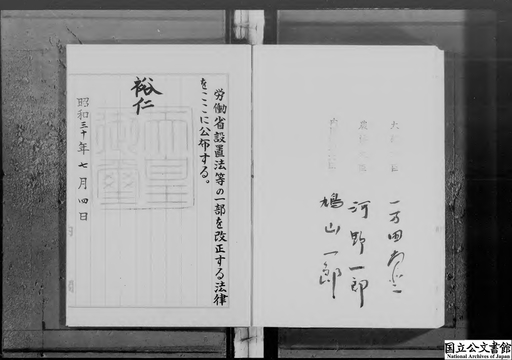 大蔵大臣 一万田尚登
農林大臣 河野一郎
鳩山一郎
労働省設置法等の一部を改正する法律
をここに公布する。
裕仁
天皇
御璽
昭和三十年七月四日
国立公文書館
National Archives of Japan